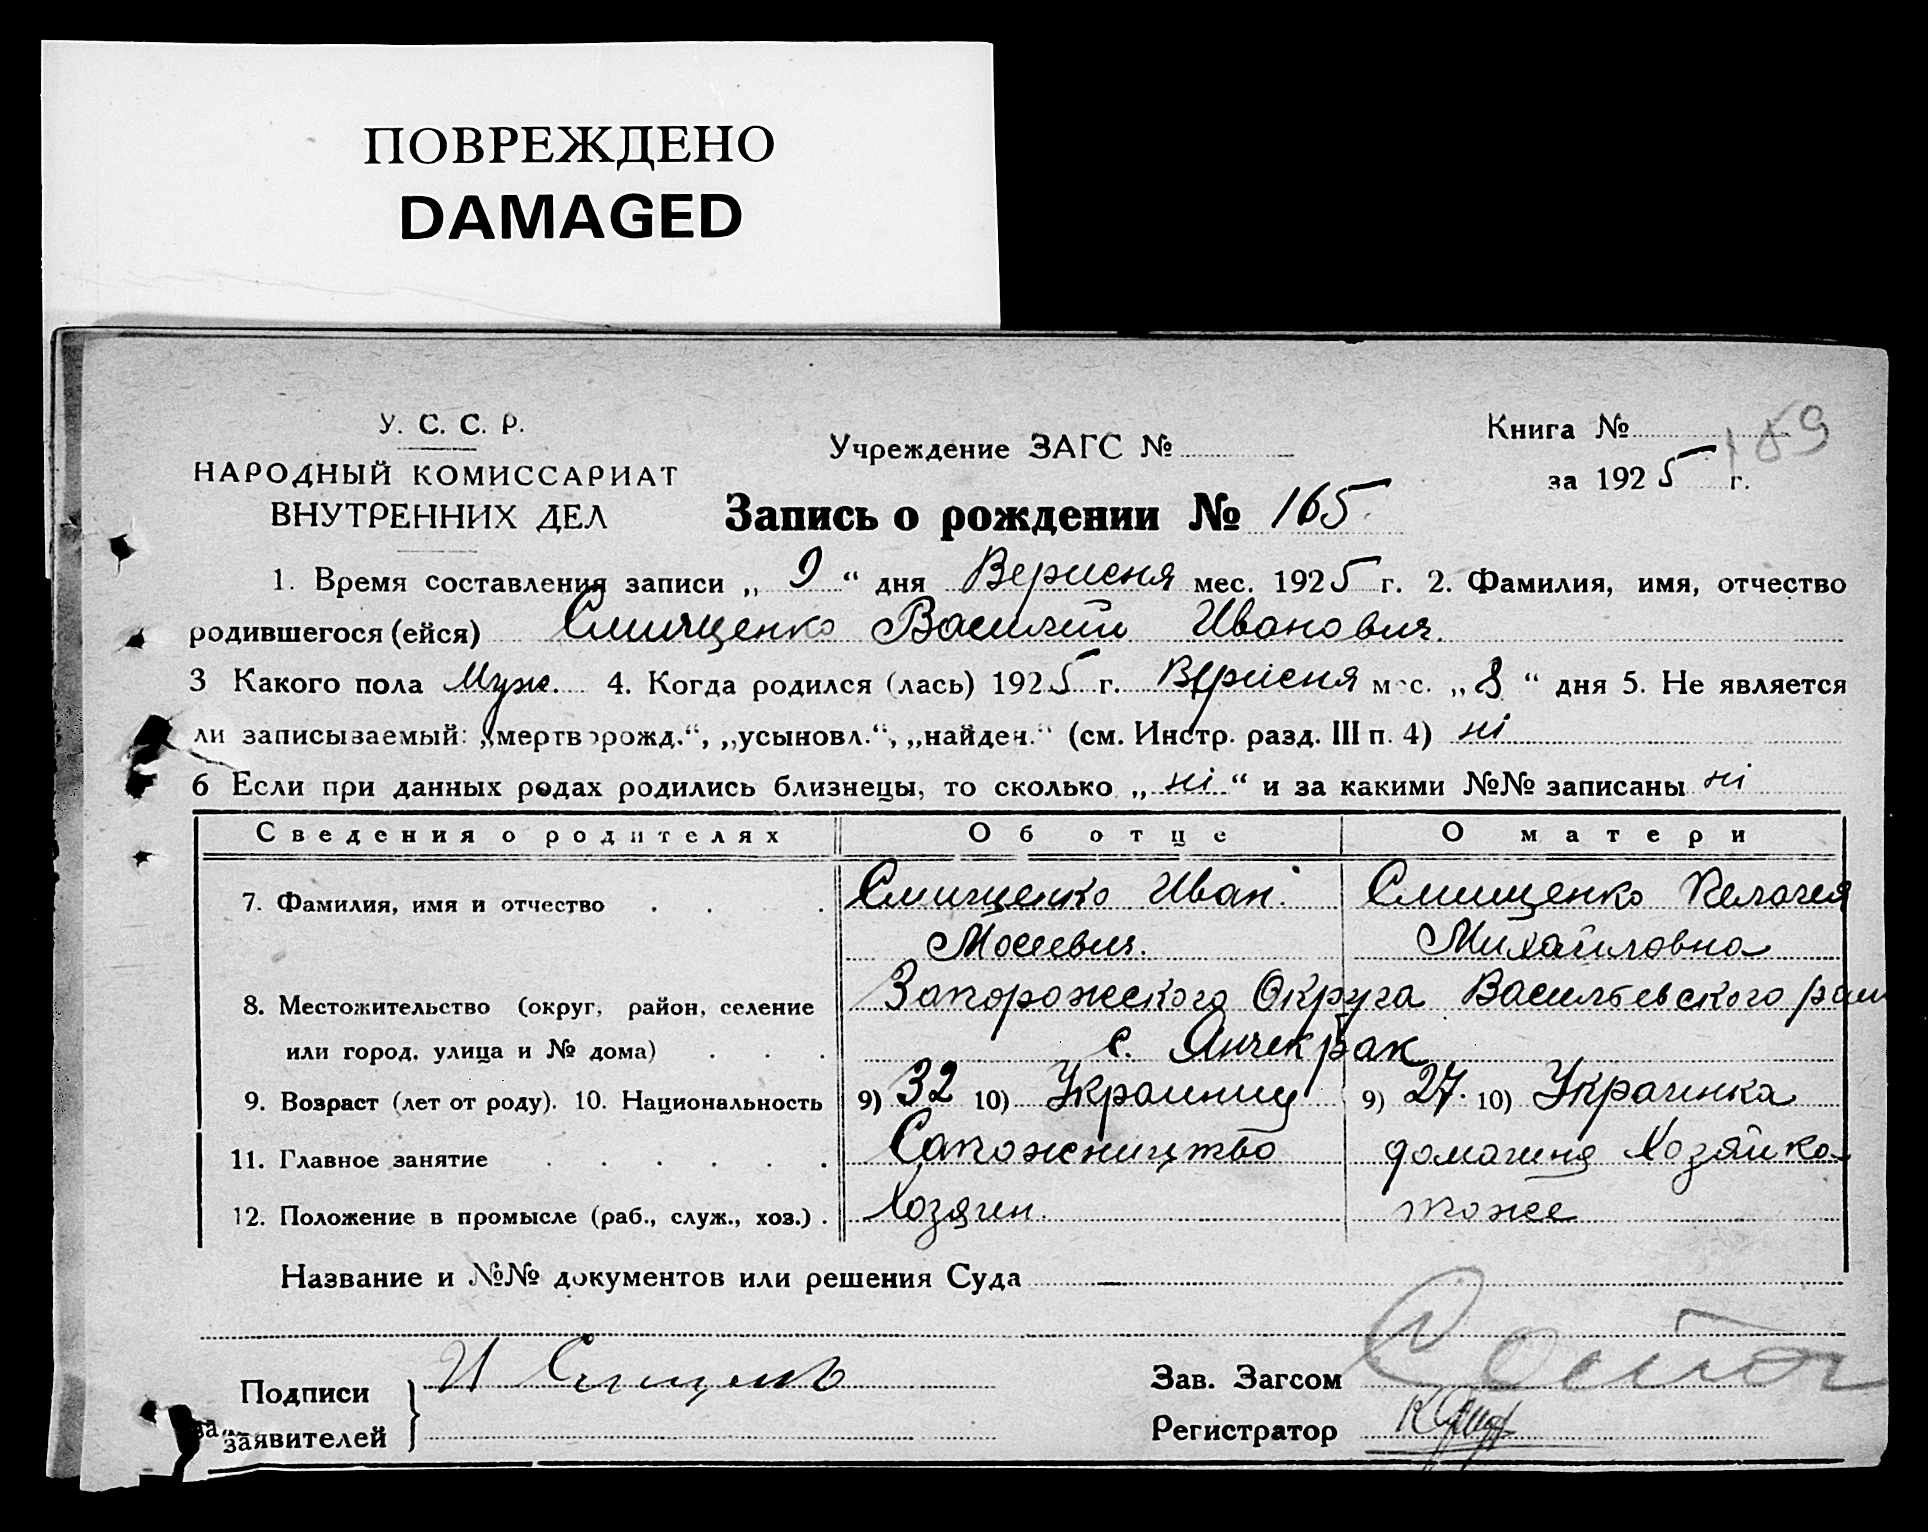 ПОВРЕЖДЕНО
DAMAGED
У. С. С. Р.
НАРОДНЫЙ КОМИССАРИАТ
ВНУТРЕННИХ ДЕЛ
Учреждение ЗАГС №
Книга №
189
за 1925 г.
Запись о рождении № 165.
1. Время составления записи „ 9 “ дня Вересня мес. 1925 г. 2. Фамилия, имя, отчество
родившегося (ейся) Смищенко Василий Иванович.
3 Какого пола Муж. 4. Когда родился (лась) 1925 г. Вересня мес. „ 8 “ дня 5. Не является
ли записываемый: „мертворожд.“, „усыновл.“, „найден.“ (см. Инстр. разд. III п. 4) ні
6 Если при данных родах родились близнецы, то сколько „ ні “ и за какими №№ записаны ні
Сведения о родителях Об отце О матери
7. Фамилия, имя и отчество Смищенко Иван Смищенко Пелагея
Мосеевич. Михайловна
8. Местожительство (округ, район, селение Запорожского Округа Васильевского рай
или город, улица и № дома) с. Янчекрак
9. Возраст (лет от роду). 10. Национальность 9) 32 10) Украинец 9) 27. 10) Украинка
11. Главное занятие Сапожництво домашня Хозяйка
12. Положение в промысле (раб., служ., хоз.) Хозяин. тоже
Название и №№ документов или решения Суда —
Подписи И Смищенко
заявителей
Зав. Загсом
Регистратор